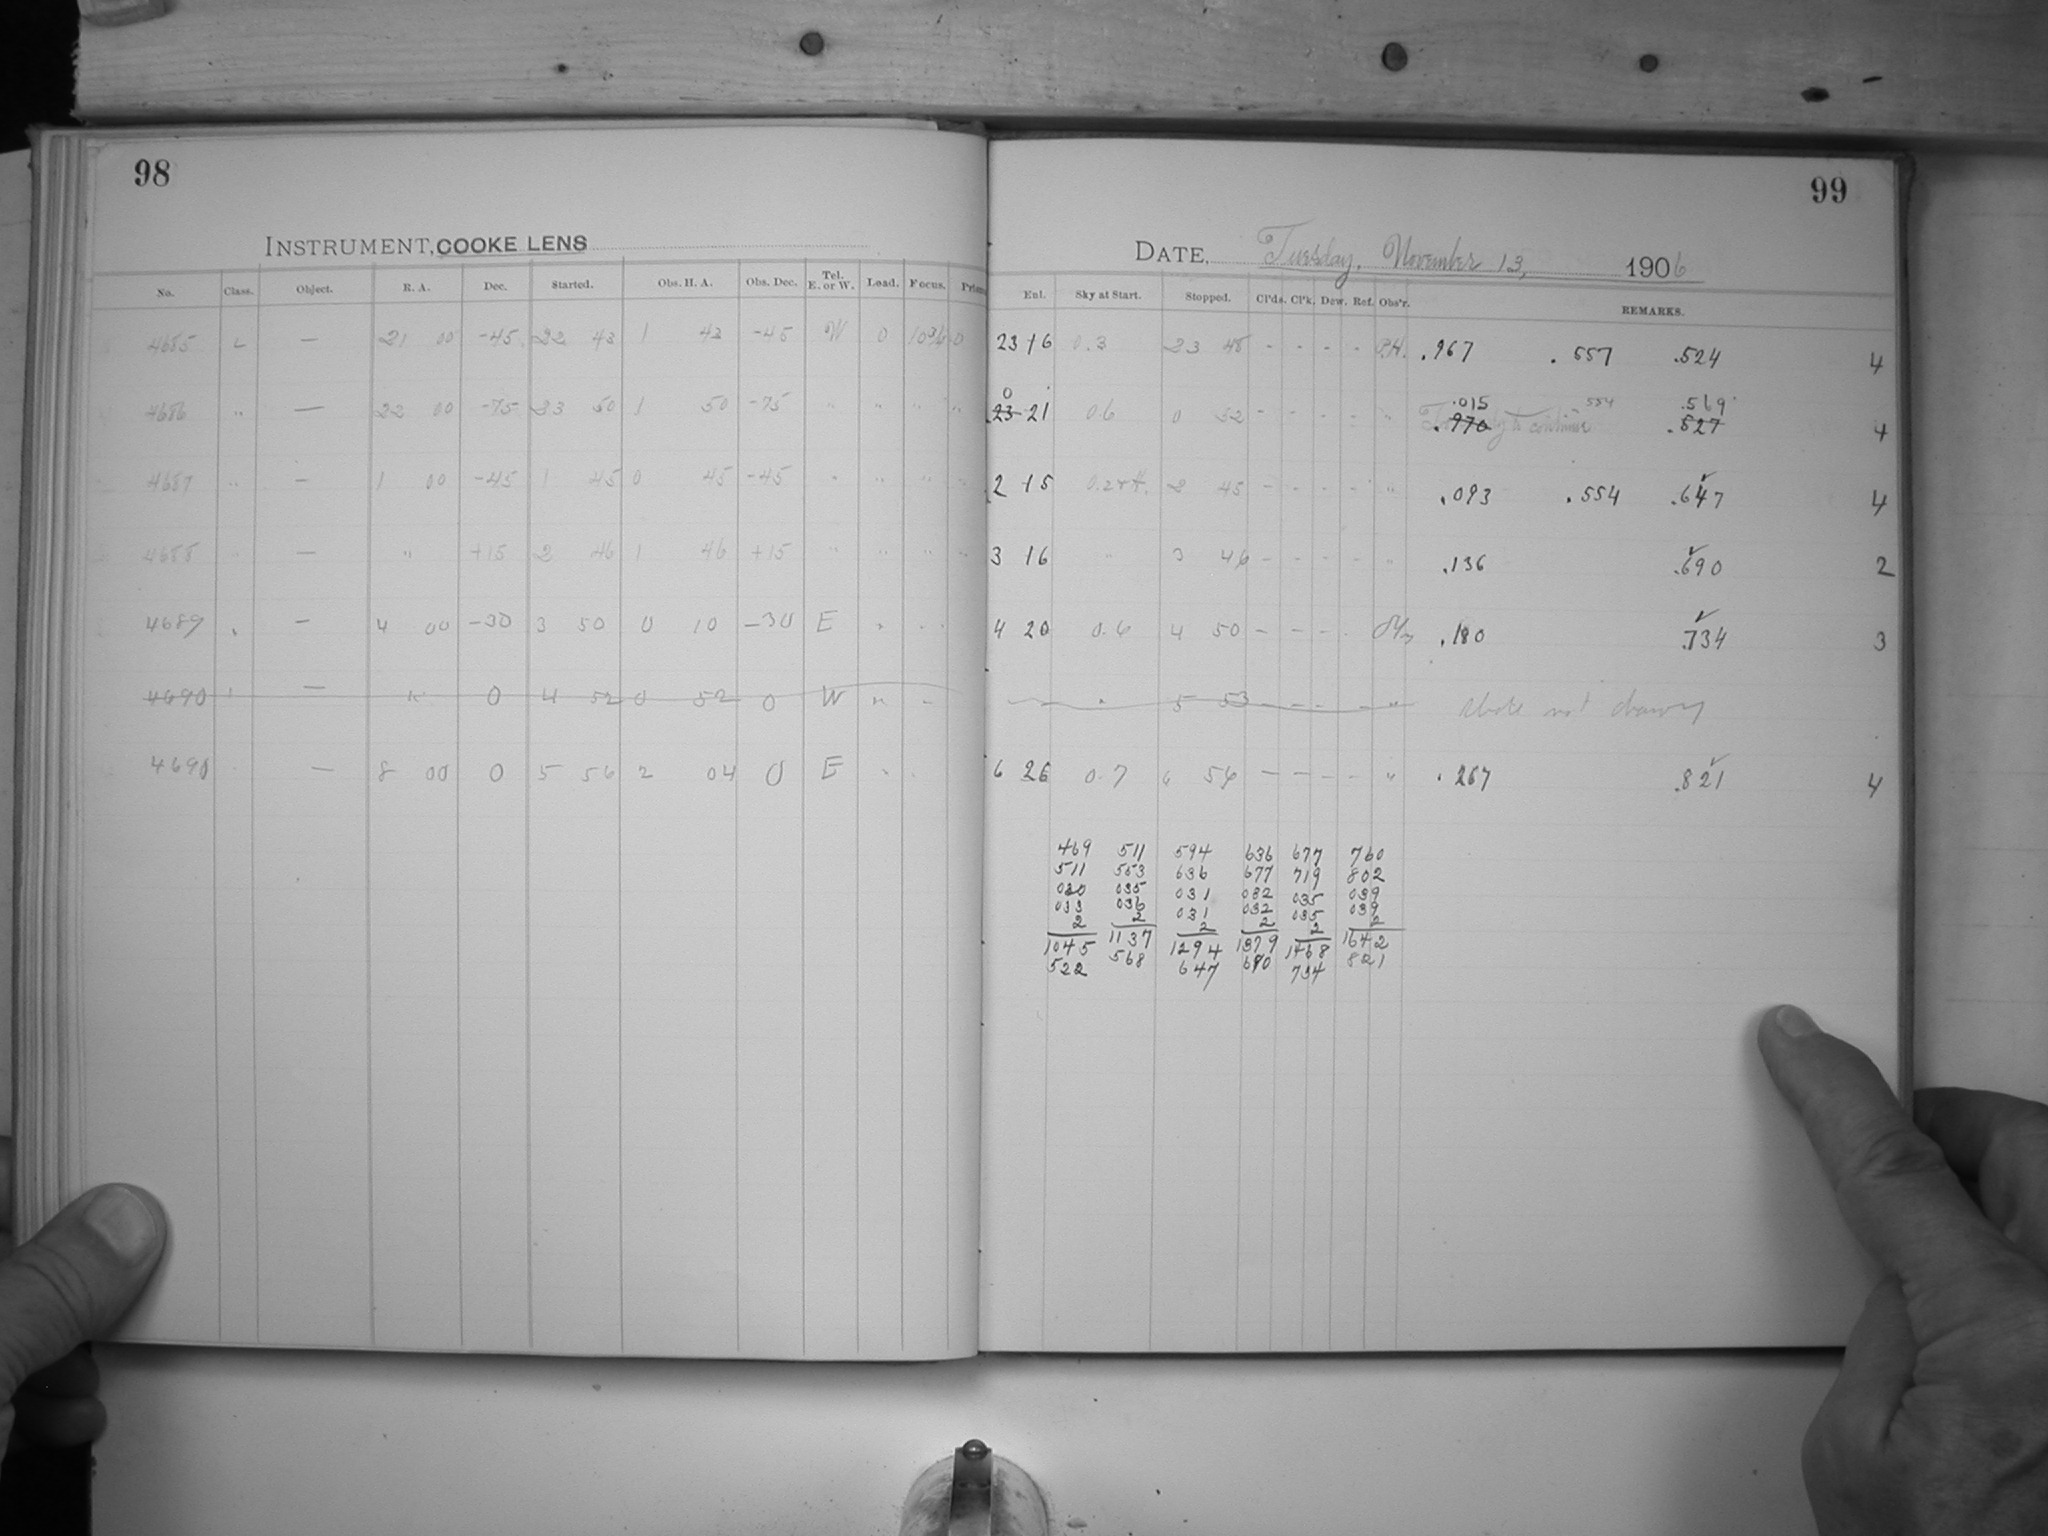 98
INSTRUMENT, COOKE LENS
No. Class. Object. R. A. Dec. Started. Obs. H. A. Obs. Dec. Tel. E. or W. Load. Focus. Prism
4685 L — 21 00 -45 22 43 1 43 -45 W 0 0
4686 " — 22 00 -75 23 50 1 50 -75 " " " "
4687 " — 1 00 -45 1 45 0 45 -45 " " " "
4688 " — " +15 2 46 1 46 +15 " " " "
4689 — 4 00 -30 3 50 0 10 -30 E
4690 — " 0 4 52 0 52 0 W " "
4690 — 8 00 0 5 56 2 04 0 E
99
DATE, Tuesday, November 13, 1906
Enl. Sky at Start. Stopped. Cl'ds. Cl'k. Dew. Ref. Obs'r. REMARKS.
23 16 0.3 23 48 - - - - .967 .557 .524 4
0 .015 554 .569
23 21 0.6 0 52 - - - - " .970 to continue .527 4
2 15 2 45 - - - - " .093 .554 .647 4
3 16 " 3 46 - - - - " .136 .690 2
4 20 0.6 4 50 - - - .180 .734 3
" 5 53 - - - - " above not drawn
6 26 0.7 6 56 - - - - " .267 .821 4
469 511 594 636 677 760
511 553 636 677 719 802
030 035 031 032 035 039
033 036 031 032 035 039
2 2 2 2 2 2
1045 1137 1294 1379 1468 1642
522 568 647 690 734 821